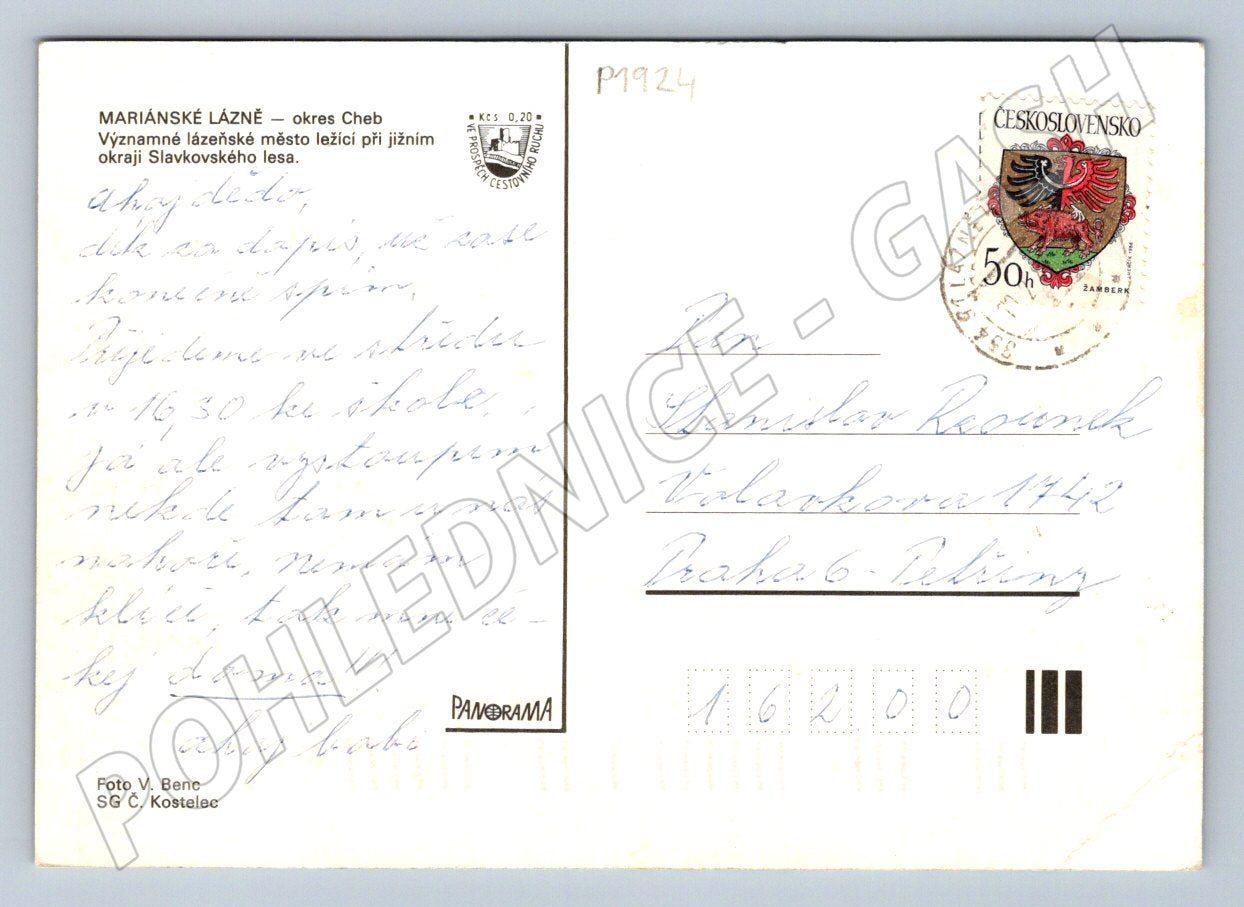 P1924
MARIÁNSKÉ LÁZNĚ — okres Cheb
Významné lázeňské město ležící při jižním
okraji Slavkovského lesa.
Kčs 0,20
VE PROSPĚCH CESTOVNÍHO RUCHU
Ahoj dědo,
dík za dopis, už zase
konečně spím.
Přijedeme ve středu
v 16,30 ke škole.
Já ale vystoupím
někde tam u nás
nahoře, nemám
klíče, tak mne če-
kej doma!
ahoj babi
PANORAMA
Foto V. Benc
SG Č. Kostelec
ČESKOSLOVENSKO
50h
ŽAMBERK
354 91 LÁZNĚ
Pan
Stanislav
Volavkova 1742
Praha 6 - Petřiny
16200
POHLEDNICE - GASH